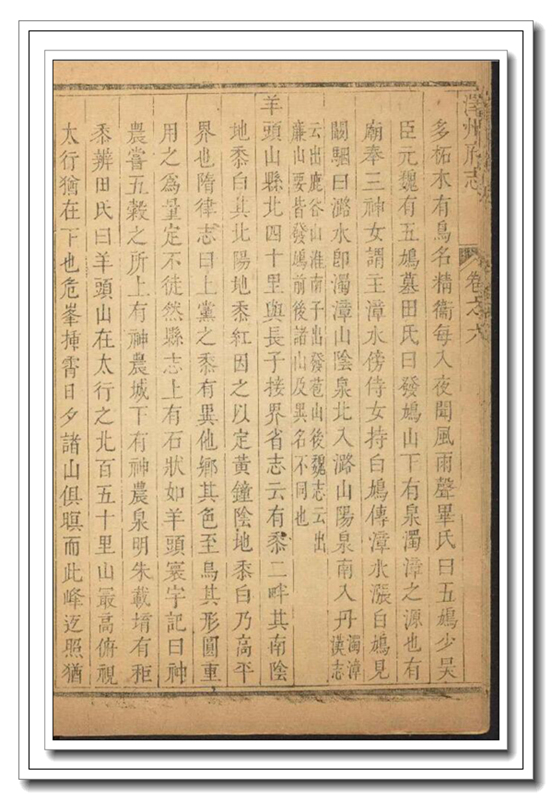 澤州府志
卷之六
多柘木有鳥名精衞每入夜聞風雨聲畢氏曰五鳩少吴
臣元魏有五鳩墓田氏曰發鳩山下有泉濁漳之源也有
廟奉三神女謂主漳水傍侍女持白鳩傳漳水漲白鳩見
闞駰曰潞水即濁漳山陰泉北入潞山陽泉南入丹濁漳漢志
云出鹿谷山淮南子出發苞山後魏志云出
亷山要皆發鳩前後諸山及異名不同也
羊頭山縣北四十里與長子接界省志云有黍二畔其南陰
地黍白其北陽地黍紅因之以定黃鐘陰地黍白乃高平
界也隋律志曰上黨之黍有異他鄉其色至烏其形圓重
用之爲量定不徒然縣志上有石狀如羊頭寰宇記曰神
農嘗五穀之所上有神農城下有神農泉明朱載堉有秬
黍辨田氏曰羊頭山在太行之北百五十里山最高俯視
太行猶在下也危峯挿霄日夕諸山俱暝而此峰返照猶